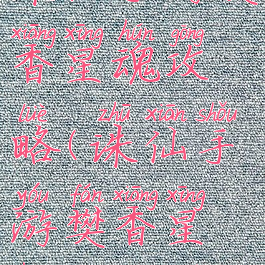 xiāng xīng hún gōng
香星魂攻
lüè zhū xiān shǒu
略(诛仙手
yóu fán xiāng xīng
游樊香星